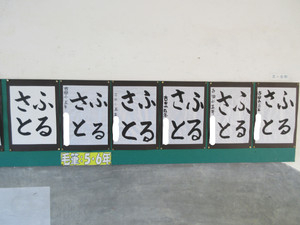 ふる
さと
ふる
さと
ふる
さと
ふる
さと
ふる
さと
ふる
さと
毛筆 5・6年